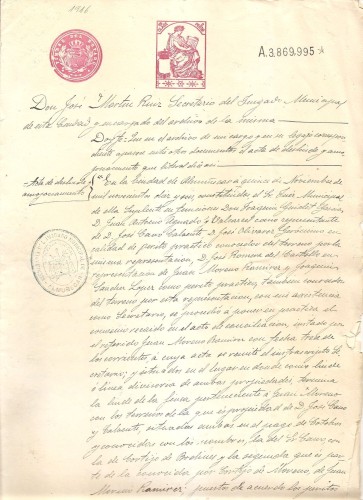 1916
A.3.869.995
Don José Martin Ruiz Secretario del Juzgado Municipal
de esta Ciudad y encargado del archivo de la misma
Doy fe: Que en el archivo de mi cargo y en su legajo correspon
diente aparece entre otros documentos el acta de deslinde y amo
jonamiento que literal dice:
Acta de deslinde y
amojonamiento
En la Ciudad de Almuñécar a quince de Noviembre de
mil novecientos diez y seis, constituidos el Sr. Juez Municipal
de ella Suplente en funciones Don Joaquin
D. Juan Antonio Aguado y como representante
de D. José Cano D. José Olivares Jerónimo en
calidad de perito practico conocedor del terreno por la
misma representacion, D. José Romera del Castillo en
representacion de Juan Moreno Ramirez y Joaquin
Sanchez Lopez como perito practico, tambien conocedor
del terreno por esta representacion, con mi asistencia
como Secretario, se procedió a poner en practica el
convenio recaido en el acto de conciliacion, instado por
el referido Juan Moreno Ramirez con fecha trece de
los corrientes, a cuya acta se remite el infrascrito Se
cretario; y estando en el lugar en donde como linde
ó linea divisoria de ambas propiedades, termina
la linde de la finca perteneciente a Juan Moreno
con los terrenos de la que es propiedad de D. José Cano
y situadas ambas en el pago de
y conocidas con los nombres, la del Sr. Cano, con
la de Cortijo de y la segunda que es par
te de la conocida por Cortijo de Moreno, de Juan
Moreno Ramirez, puestos de acuerdo los peritos